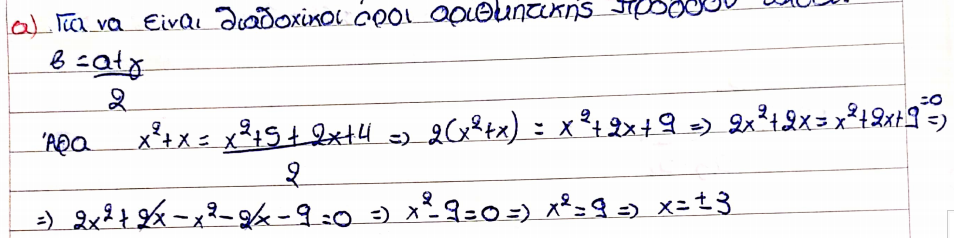 α) Για να είναι διαδοχικοί όροι αριθμητικής προόδου
β = α+γ
2
Άρα x²+x = x²+5+2x+4 => 2(x²+x) = x²+2x+9 => 2x²+2x = x²+2x+9 =0 =>
2
=> 2x²+2x-x²-2x-9=0 => x²-9=0 => x²=9 => x=±3